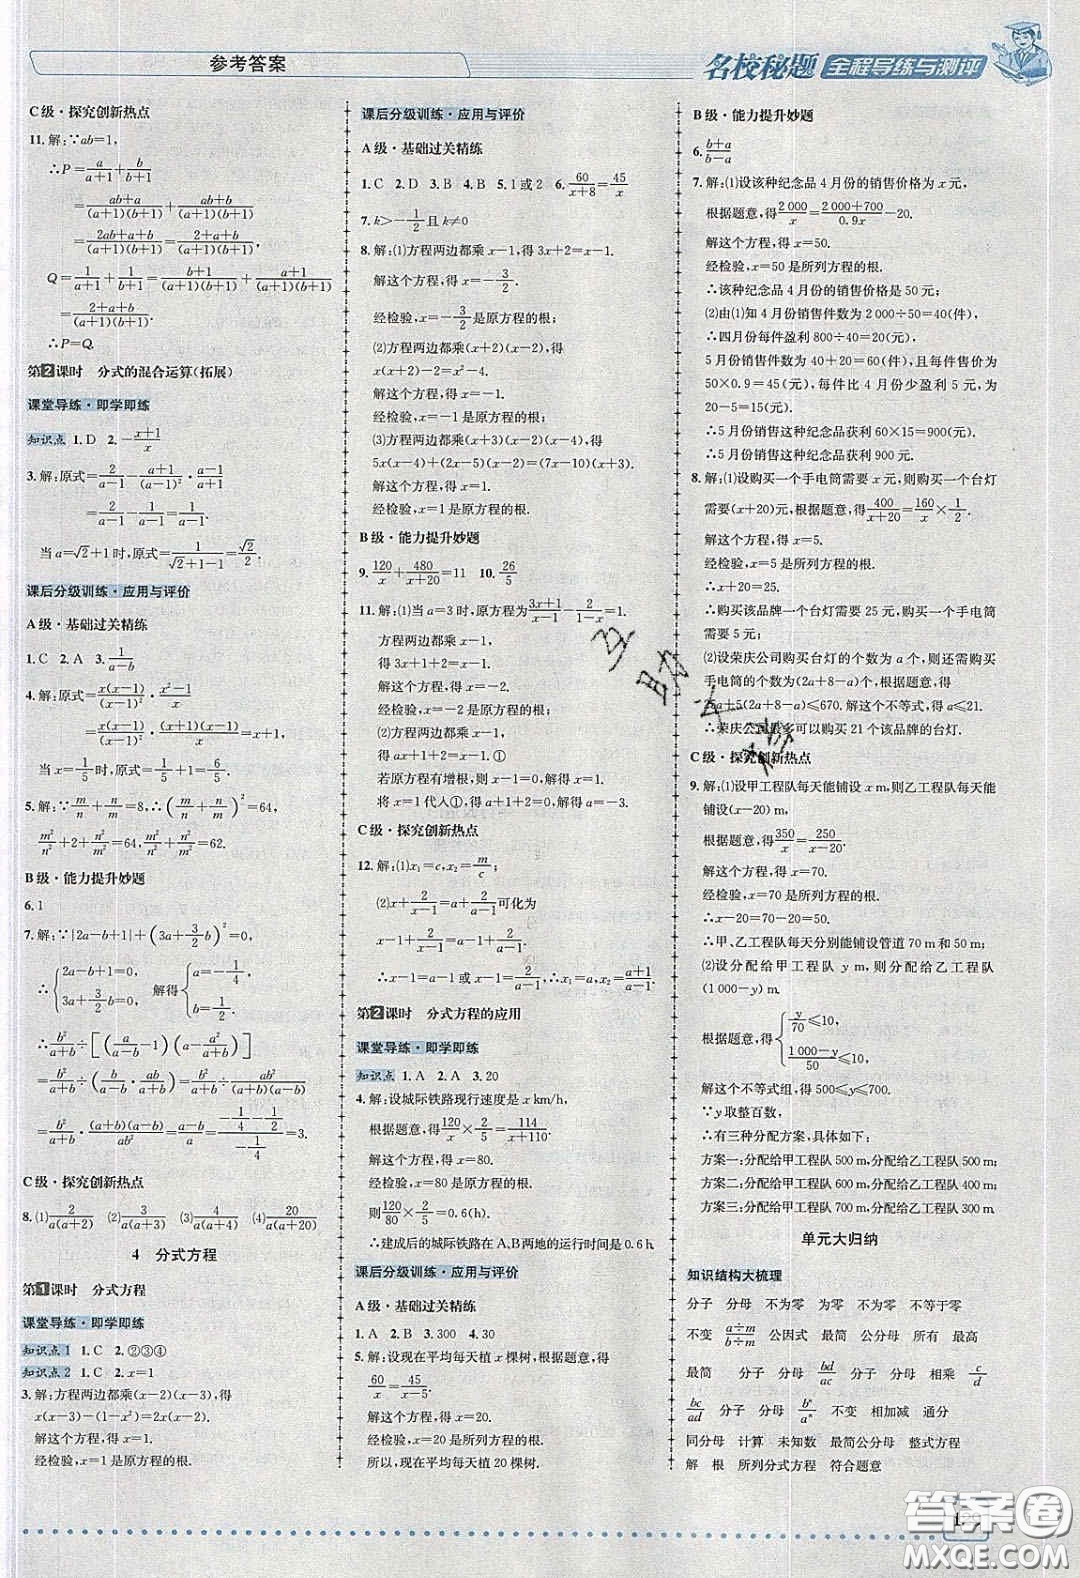 参考答案
名校秘题 全程导练与测评
C级·探究创新热点
11.解:∵ab=1,
∴P=a/(a+1)+b/(b+1)
=(ab+a)/((a+1)(b+1))+(ab+b)/((a+1)(b+1))
=(2ab+a+b)/((a+1)(b+1))=(2+a+b)/((a+1)(b+1)).
Q=1/(a+1)+1/(b+1)=(b+1)/((a+1)(b+1))+(a+1)/((a+1)(b+1))
=(2+a+b)/((a+1)(b+1)).
∴P=Q.
第2课时 分式的混合运算(拓展)
课堂导练·即学即练
知识点 1.D 2.-(x+1)/x
3.解:原式=2/(a-1)-(a+1)/(a-1)²·(a-1)/(a+1)
=2/(a-1)-1/(a-1)=1/(a-1).
当a=√2+1时,原式=1/(√2+1-1)=√2/2.
课后分级训练·应用与评价
A级·基础过关精练
1.C 2.A 3.1/(a-b)
4.解:原式=x(x-1)/(x-1)²·(x²-1)/x
=x(x-1)/(x-1)²·(x+1)(x-1)/x=x+1,
当x=1/5时,原式=1/5+1=6/5.
5.解:∵m/n+n/m=8,∴(m/n+n/m)²=64,
m²/n²+2+n²/m²=64,m²/n²+n²/m²=62.
B级·能力提升妙题
6.1
7.解:∵|2a-b+1|+(3a+3/2b)²=0,
∴{2a-b+1=0, 3a+3/2b=0, 解得{a=-1/4, b=1/2.
∴b²/(a+b)÷[(b/(a-b)-1)(a-a²/(a+b))]
=b²/(a+b)÷(b/(a-b)·ab/(a+b))=b²/(a+b)÷ab²/((a+b)(a-b))
=b²/(a+b)·(a+b)(a-b)/ab²=(a-b)/a=(-1/4-1/2)/(-1/4)=3.
C级·探究创新热点
8.(1)2/(a(a+2)) (2)3/(a(a+3)) (3)4/(a(a+4)) (4)20/(a(a+20))
4 分式方程
第1课时 分式方程
课堂导练·即学即练
知识点1 1.C 2.②③④
知识点2 1.C 2.x=1
3.解:方程两边都乘(x-2)(x-3),得
x(x-3)-(1-x²)=2x(x-2).
解这个方程,得x=1.
经检验,x=1是原方程的根.
课后分级训练·应用与评价
A级·基础过关精练
1.C 2.D 3.B 4.B 5.1或2 6.60/(x+8)=45/x
7.k>-1/2且k≠0
8.解:(1)方程两边都乘x-1,得3x+2=x-1.
解这个方程,得x=-3/2.
经检验,x=-3/2是原方程的根;
(2)方程两边都乘(x+2)(x-2),得
x(x+2)-(x²-4)=2.
解这个方程,得x=-1.
经检验,x=-1是原方程的根;
(3)方程两边都乘(x+3)(x-2)(x-4),得
5x(x-4)+(2x-5)(x-2)=(7x-10)(x+3).
解这个方程,得x=1.
经检验,x=1是原方程的根.
B级·能力提升妙题
9.120/x+480/(x+20)=11 10.26/5
11.解:(1)当a=3时,原方程为(3x+1)/(x-1)-2/(1-x)=1.
方程两边都乘x-1,
得3x+1+2=x-1.
解这个方程,得x=-2.
经检验,x=-2是原方程的根;
(2)方程两边都乘x-1,
得ax+1+2=x-1.①
若原方程有增根,则x-1=0,解得x=1.
将x=1代入①,得a+1+2=0,解得a=-3.
C级·探究创新热点
12.解:(1)x₁=c,x₂=m/c;
(2)x+2/(x-1)=a+2/(a-1)可化为
x-1+2/(x-1)=a-1+2/(a-1),
∴x-1=a-1或x-1=2/(a-1),∴x₁=a,x₂=(a+1)/(a-1).
第2课时 分式方程的应用
课堂导练·即学即练
知识点 1.A 2.A 3.20
4.解:设城际铁路现行速度是x km/h,
根据题意,得120/x×2/5=114/(x+110).
解这个方程,得x=80.
经检验,x=80是原方程的根,
则120/80×2/5=0.6(h).
∴建成后的城际铁路在A,B两地的运行时间是0.6 h.
课后分级训练·应用与评价
A级·基础过关精练
1.A 2.B 3.300 4.30
5.解:设现在平均每天植x棵树,根据题意,得
60/x=45/(x-5).
解这个方程,得x=20.
经检验,x=20是原方程的根,
所以,现在平均每天植20棵树.
B级·能力提升妙题
6.(b+a)/(b-a)
7.解:(1)设该种纪念品4月份的销售价格为x元,
根据题意,得2 000/x=(2 000+700)/0.9x-20.
解这个方程,得x=50.
经检验,x=50是所列方程的根.
∴该种纪念品4月份的销售价格是50元;
(2)由(1)知4月份销售件数为2 000÷50=40(件),
∴四月份每件盈利800÷40=20(元),
5月份销售件数为40+20=60(件),且每件售价为
50×0.9=45(元),每件比4月份少盈利5元,为
20-5=15(元).
∴5月份销售这种纪念品获利60×15=900(元).
∴5月份销售这种纪念品获利900元.
8.解:(1)设购买一个手电筒需要x元,则购买一个台灯
需要(x+20)元,根据题意,得400/(x+20)=160/x×1/2.
解这个方程,得x=5.
经检验,x=5是所列方程的根.
∴x+20=25.
∴购买该品牌一个台灯需要25元,购买一个手电筒
需要5元;
(2)设荣庆公司购买台灯的个数为a个,则还需购买
手电筒的个数为(2a+8-a)个,根据题意,得
25a+5(2a+8-a)≤670.解这个不等式,得a≤21.
∴荣庆公司最多可以购买21个该品牌的台灯.
C级·探究创新热点
9.解:(1)设甲工程队每天能铺设x m,则乙工程队每天能
铺设(x-20)m,
根据题意,得350/x=250/(x-20).
解这个方程,得x=70.
经检验,x=70是所列方程的根.
∴x-20=70-20=50.
∴甲、乙工程队每天分别能铺设管道70 m和50 m;
(2)设分配给甲工程队y m,则分配给乙工程队
(1 000-y)m,
根据题意,得{y/70≤10, (1 000-y)/50≤10.
解这个不等式组,得500≤y≤700.
∵y取整百数,
∴有三种分配方案,具体如下:
方案一:分配给甲工程队500 m,分配给乙工程队500 m;
方案二:分配给甲工程队600 m,分配给乙工程队400 m;
方案三:分配给甲工程队700 m,分配给乙工程队300 m.
单元大归纳
知识结构大梳理
分子 分母 不为零 为零 不为零 不等于零
不变 (a÷m)/(b÷m) 公因式 最简 公分母 所有 最高
最简 分子 分母 bd/ac 分子 分母 相乘 c/d
bc/ad 分子 分母 bⁿ/aⁿ 不变 相加减 通分
同分母 计算 未知数 最简公分母 整式方程
解 根 所列分式方程 符合题意
互助文档
答案圈
MXQE.COM